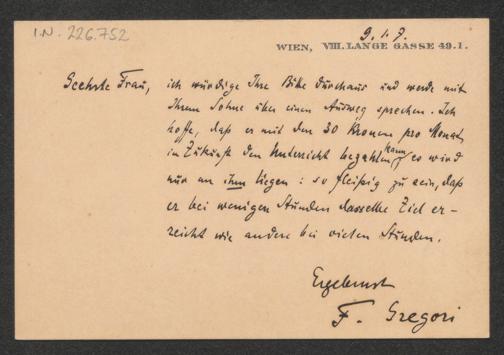 I.N. 226.752
9. 1. 9.
WIEN, VIII. LANGE GASSE 49. I.
Geehrte Frau,
ich würdige Ihre Bitte durchaus und werde mit
Ihrem Sohne über einen Ausweg sprechen. Ich
hoffe, daß er mit den 30 Kronen pro Monat
in Zukunft den Unterricht bezahlen kann, es wird
nur an ihm liegen: so fleißig zu sein, daß
er bei wenigen Stunden dasselbe Ziel er-
reicht wie andere bei vielen Stunden.
Ergebenst
F. Gregori